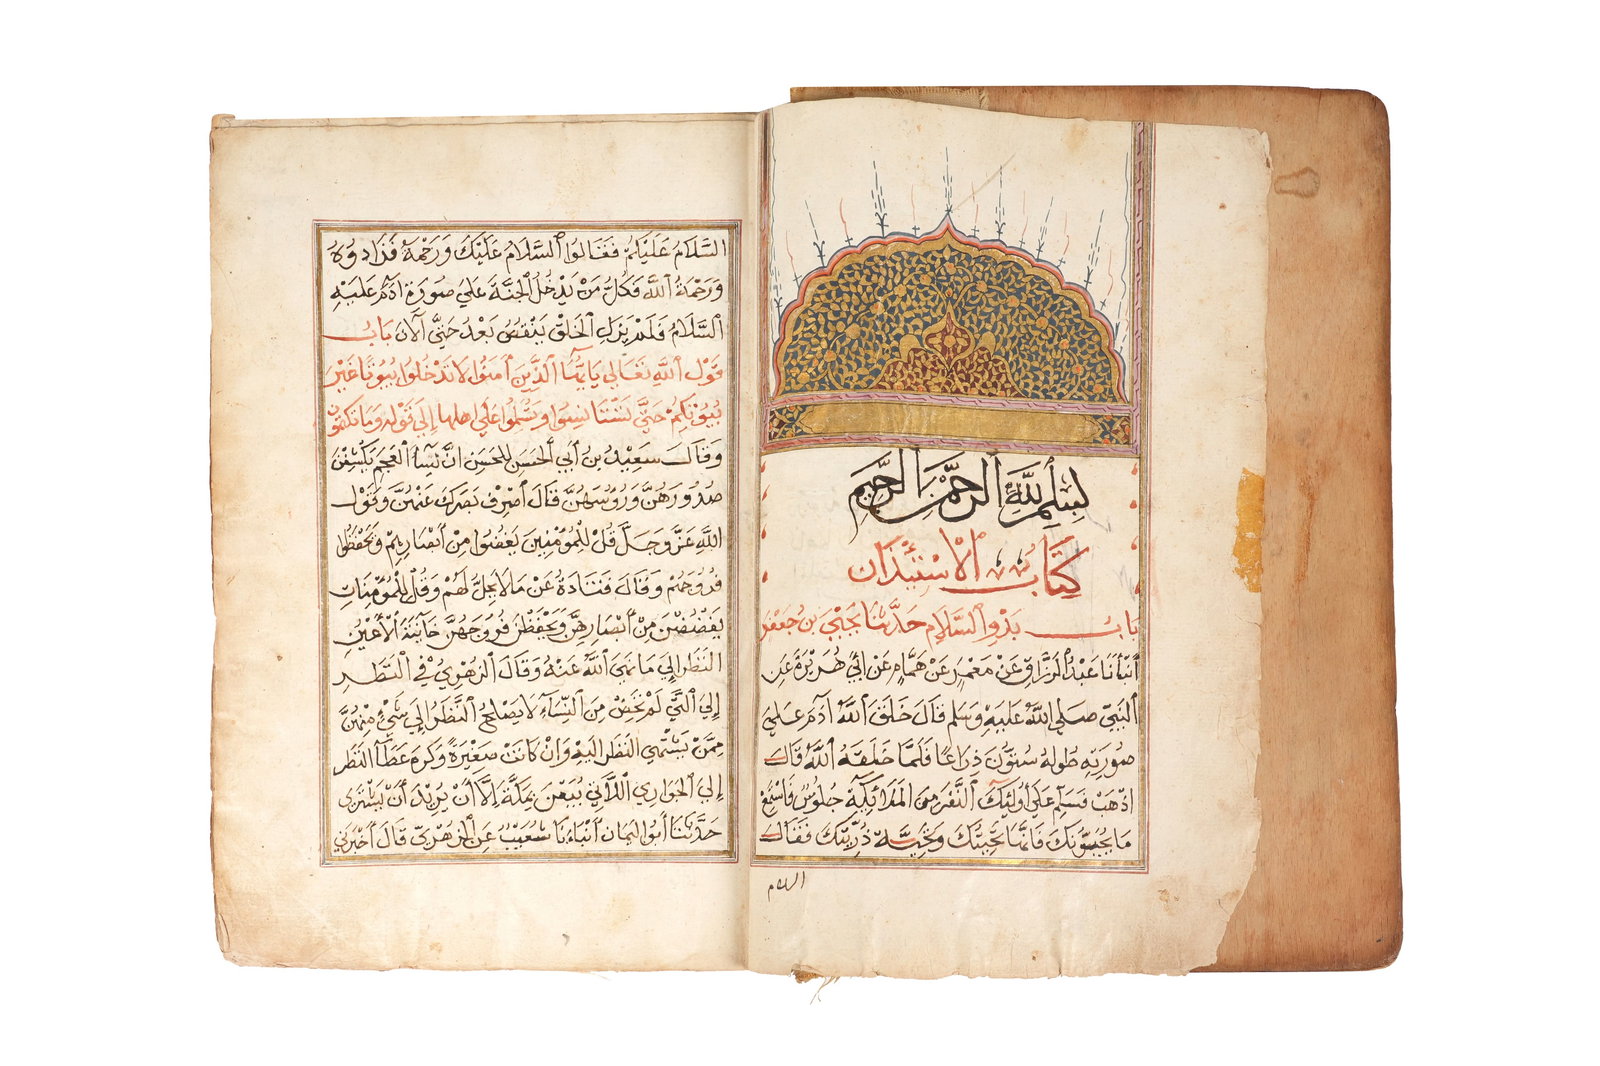 بِسْمِ اللَّهِ الرَّحْمَنِ الرَّحِيمِ
كِتَابُ الْاسْتِيْذَانِ
بَابُ بَدْوِ السَّلَامِ حَدَّثَنَا يَحْيَى بْنُ جَعْفَرَ
أَنْبَأَنَا عَبْدُ الرَّزَّاقِ عَنْ مَعْمَرٍ عَنْ هَمَّامٍ عَنْ أَبِي هُرَيْرَةَ عَنِ
النَّبِيِّ صَلَى اللَّهُ عَلَيْهِ وَسَلَّمَ قَالَ خَلَقَ اللَّهُ ادَمَ عَلَى
صُورَتِهِ طُولُهُ سِتُّونَ ذِرَاعًا فَلَمَّا خَلَقَهُ اللَّهُ قَالَ
اذْهَبْ فَسَلِّمْ عَلَى أُولَئِكَ النَّفَرِ مِنَ الْمَلَائِكَةِ جُلُوسٌ فَاسْتَمِعْ
مَا يُحَيُّونَكَ فَإِنَّهَا تَحِيَّتُكَ وَتَحِيَّةُ ذُرِّيَّتِكَ فَقَالَ
السلام
السَّلَامُ عَلَيْكُمْ فَقَالُوا السَّلَامُ عَلَيْكَ وَرَحْمَةُ فَزَادُوهُ
وَرَحْمَةُ اللَّهِ فَكُلُّ مَنْ يَدْخُلُ الْجَنَّةَ عَلَى صُورَةِ ادَمَ عَلَيْهِ
السَّلَامُ فَلَمْ يَزَلِ الْخَلْقُ يَنْقُصُ بَعْدُ حَتَّى الْآنَ بَابُ
قَوْلِ اللَّهِ تَعَالَى يَايُّهَا الَّذِينَ آمَنُوا لَا تَدْخُلُوا بُيُوتًا غَيْرَ
بُيُوتِكُمْ حَتَّى تَسْتَانِسُوا وَتُسَلِّمُوا عَلَى اهلها إِلَى قَوْلِهِ وَمَا تَكْتُمُونَ
وَقَالَ سَعِيْدُ بن أَبِي الْحَسَنِ لِلْحَسَنِ انَّ نِسَاءَ الْعَجَمِ يَكْشِفْنَ
صُدُورَهُنَّ وَرُوُسَهُنَّ قَالَ اصْرِفْ بَصَرَكَ عَنْهُنَّ وَقَوْلِ
اللَّهِ عَزَّ وَجَلَّ قُلْ لِلْمُؤْمِنِينَ يَغُضُّوا مِنْ أَبْصَارِهِمْ وَيَحْفَظُوا
فُرُوجَهُمْ وَقَالَ قَتَادَةُ عَنْ مَا لَا يَحِلُّ لَهُمْ وَقُلْ لِلْمُؤْمِنَاتِ
يَغْضُضْنَ مِنْ أَبْصَارِهِنَّ وَيَحْفَظْنَ فُرُوجَهُنَّ خَائِنَةَ الْأَعْيُنِ
النَّظَرِ إِلَى مَا نَهَى اللَّهُ عَنْهُ وَقَالَ الزُّهْرِيُّ فِي النَّظَرِ
إِلَى الَّتِي لَمْ تَحِضْ مِنَ النِّسَاءِ لَا يَصْلُحُ النَّظَرُ إِلَى شَيْءٍ مِنْهُنَّ
مِمَّنْ يَشْتَهِي النَّظَرَ الَيْهِ وَإِنْ كَانَتْ صَغِيرَةً وَكَرِهَ عَطَآ النَّظَرَ
إِلَى الْجَوَارِي اللَّاتِي يُبَعْنَ بِمَكَّةَ إِلَّا أَنْ يُرِيْدَ أَنْ يَشْتَرِيَ
حَدَّثَنَا أَبُو الْيَمَانِ أَنْبَاءَنَا شُعَيْبٌ عَنِ الزُّهْرِيِّ قَالَ أَخْبَرَنِي